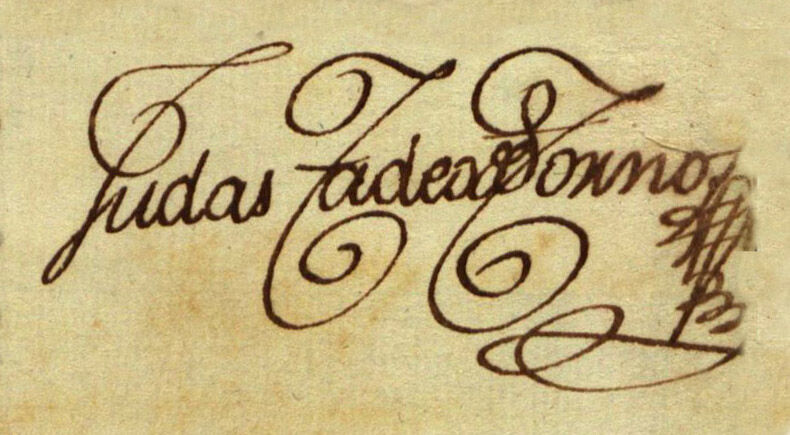 Judas Tadeo Tornos